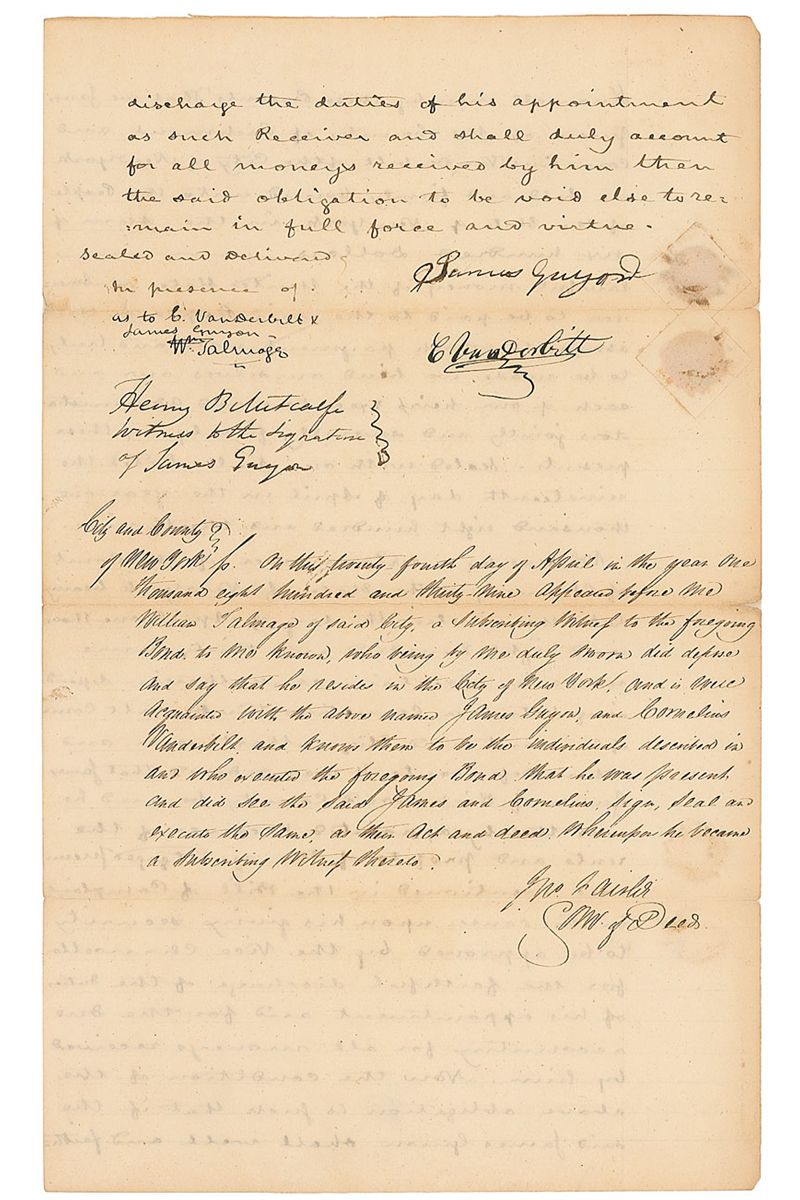 discharge the duties of his appointment
as such Receiver and shall duly account
for all moneys received by him then
the said obligation to be void else to re=
=main in full force and virtue.
Sealed and Delivered
In presence of
James Guyon
as to C. VanDerbilt &
James Guyon
Wm Talmage
C VanDerbilt
Henry B Metcalfe
Witness to the signature
of James Guyon
City and County
of New York ss. On this twenty fourth day of April in the year one
thousand eight hundred and thirty-nine appeared before me
William Talmage of said City, a Subscribing Witness to the foregoing
Bond. to me known, who being by me duly sworn did depose
and say that he resides in the City of New York, and is well
acquainted with the above named James Guyon, and Cornelius
Vanderbilt and knows them to be the individuals described in
and who executed the foregoing Bond. that he was present
and did see the said James and Cornelius, sign, seal and
execute the same, as their Act and deed. Whereupon he became
a Subscribing Witness thereto.
Com. of Deeds